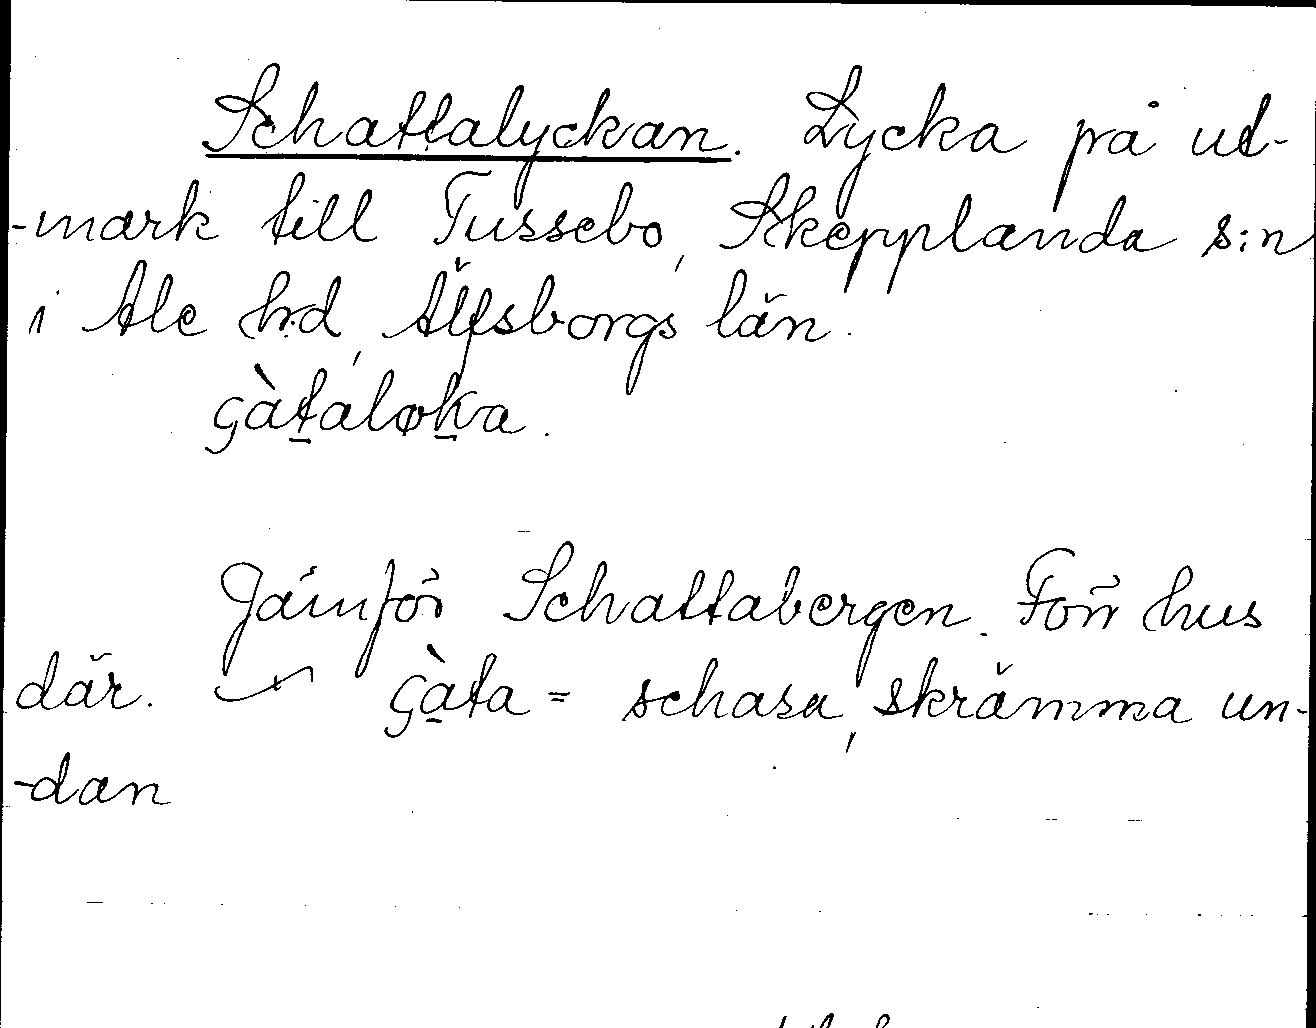 Schattalyckan. Lycka på ut-
-mark till Tussebo, Skepplanda s:n
i Ale h:d, Älfsborgs län.
çàt̲aløk̲a.
Jämför Schattabergen. Förr hus
där. çàt̲a = schasa, skrämma un-
-dan